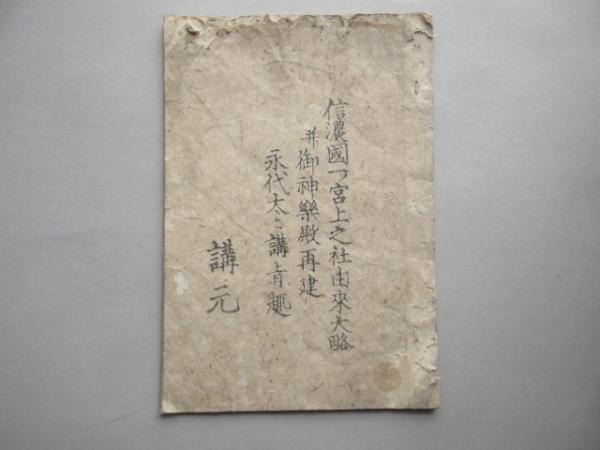 信濃國一宮上之社由来大略
并御神樂殿再建
永代太々講旨趣
講元